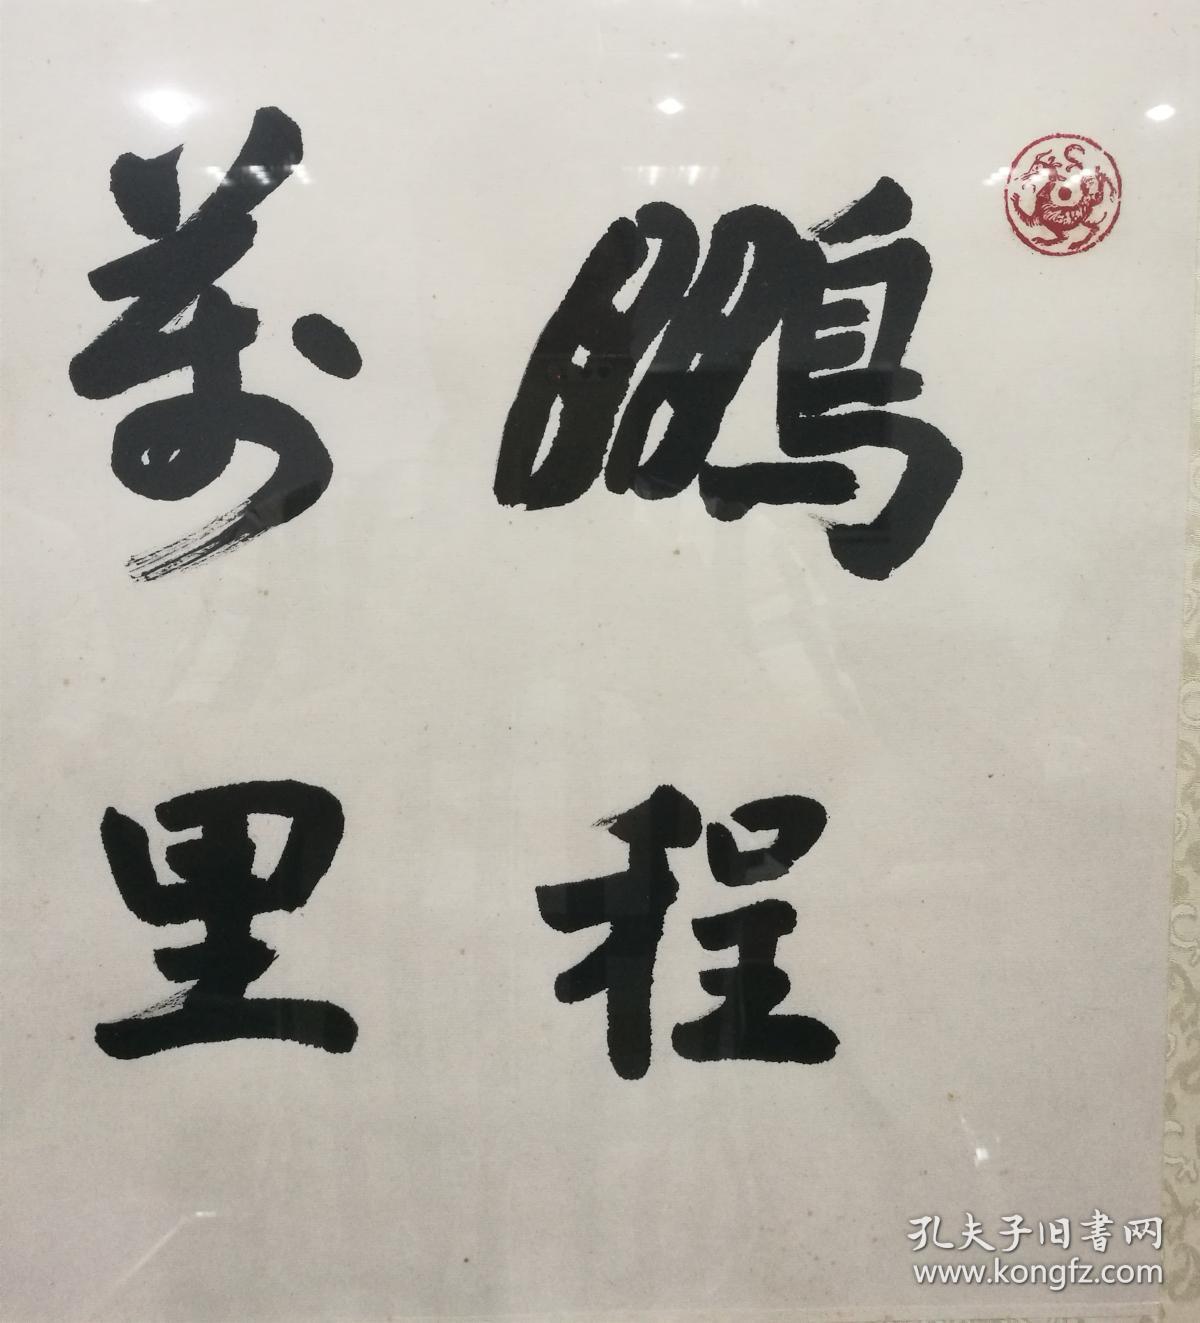 鵬程
萬里
孔夫子旧書网
www.kongfz.com